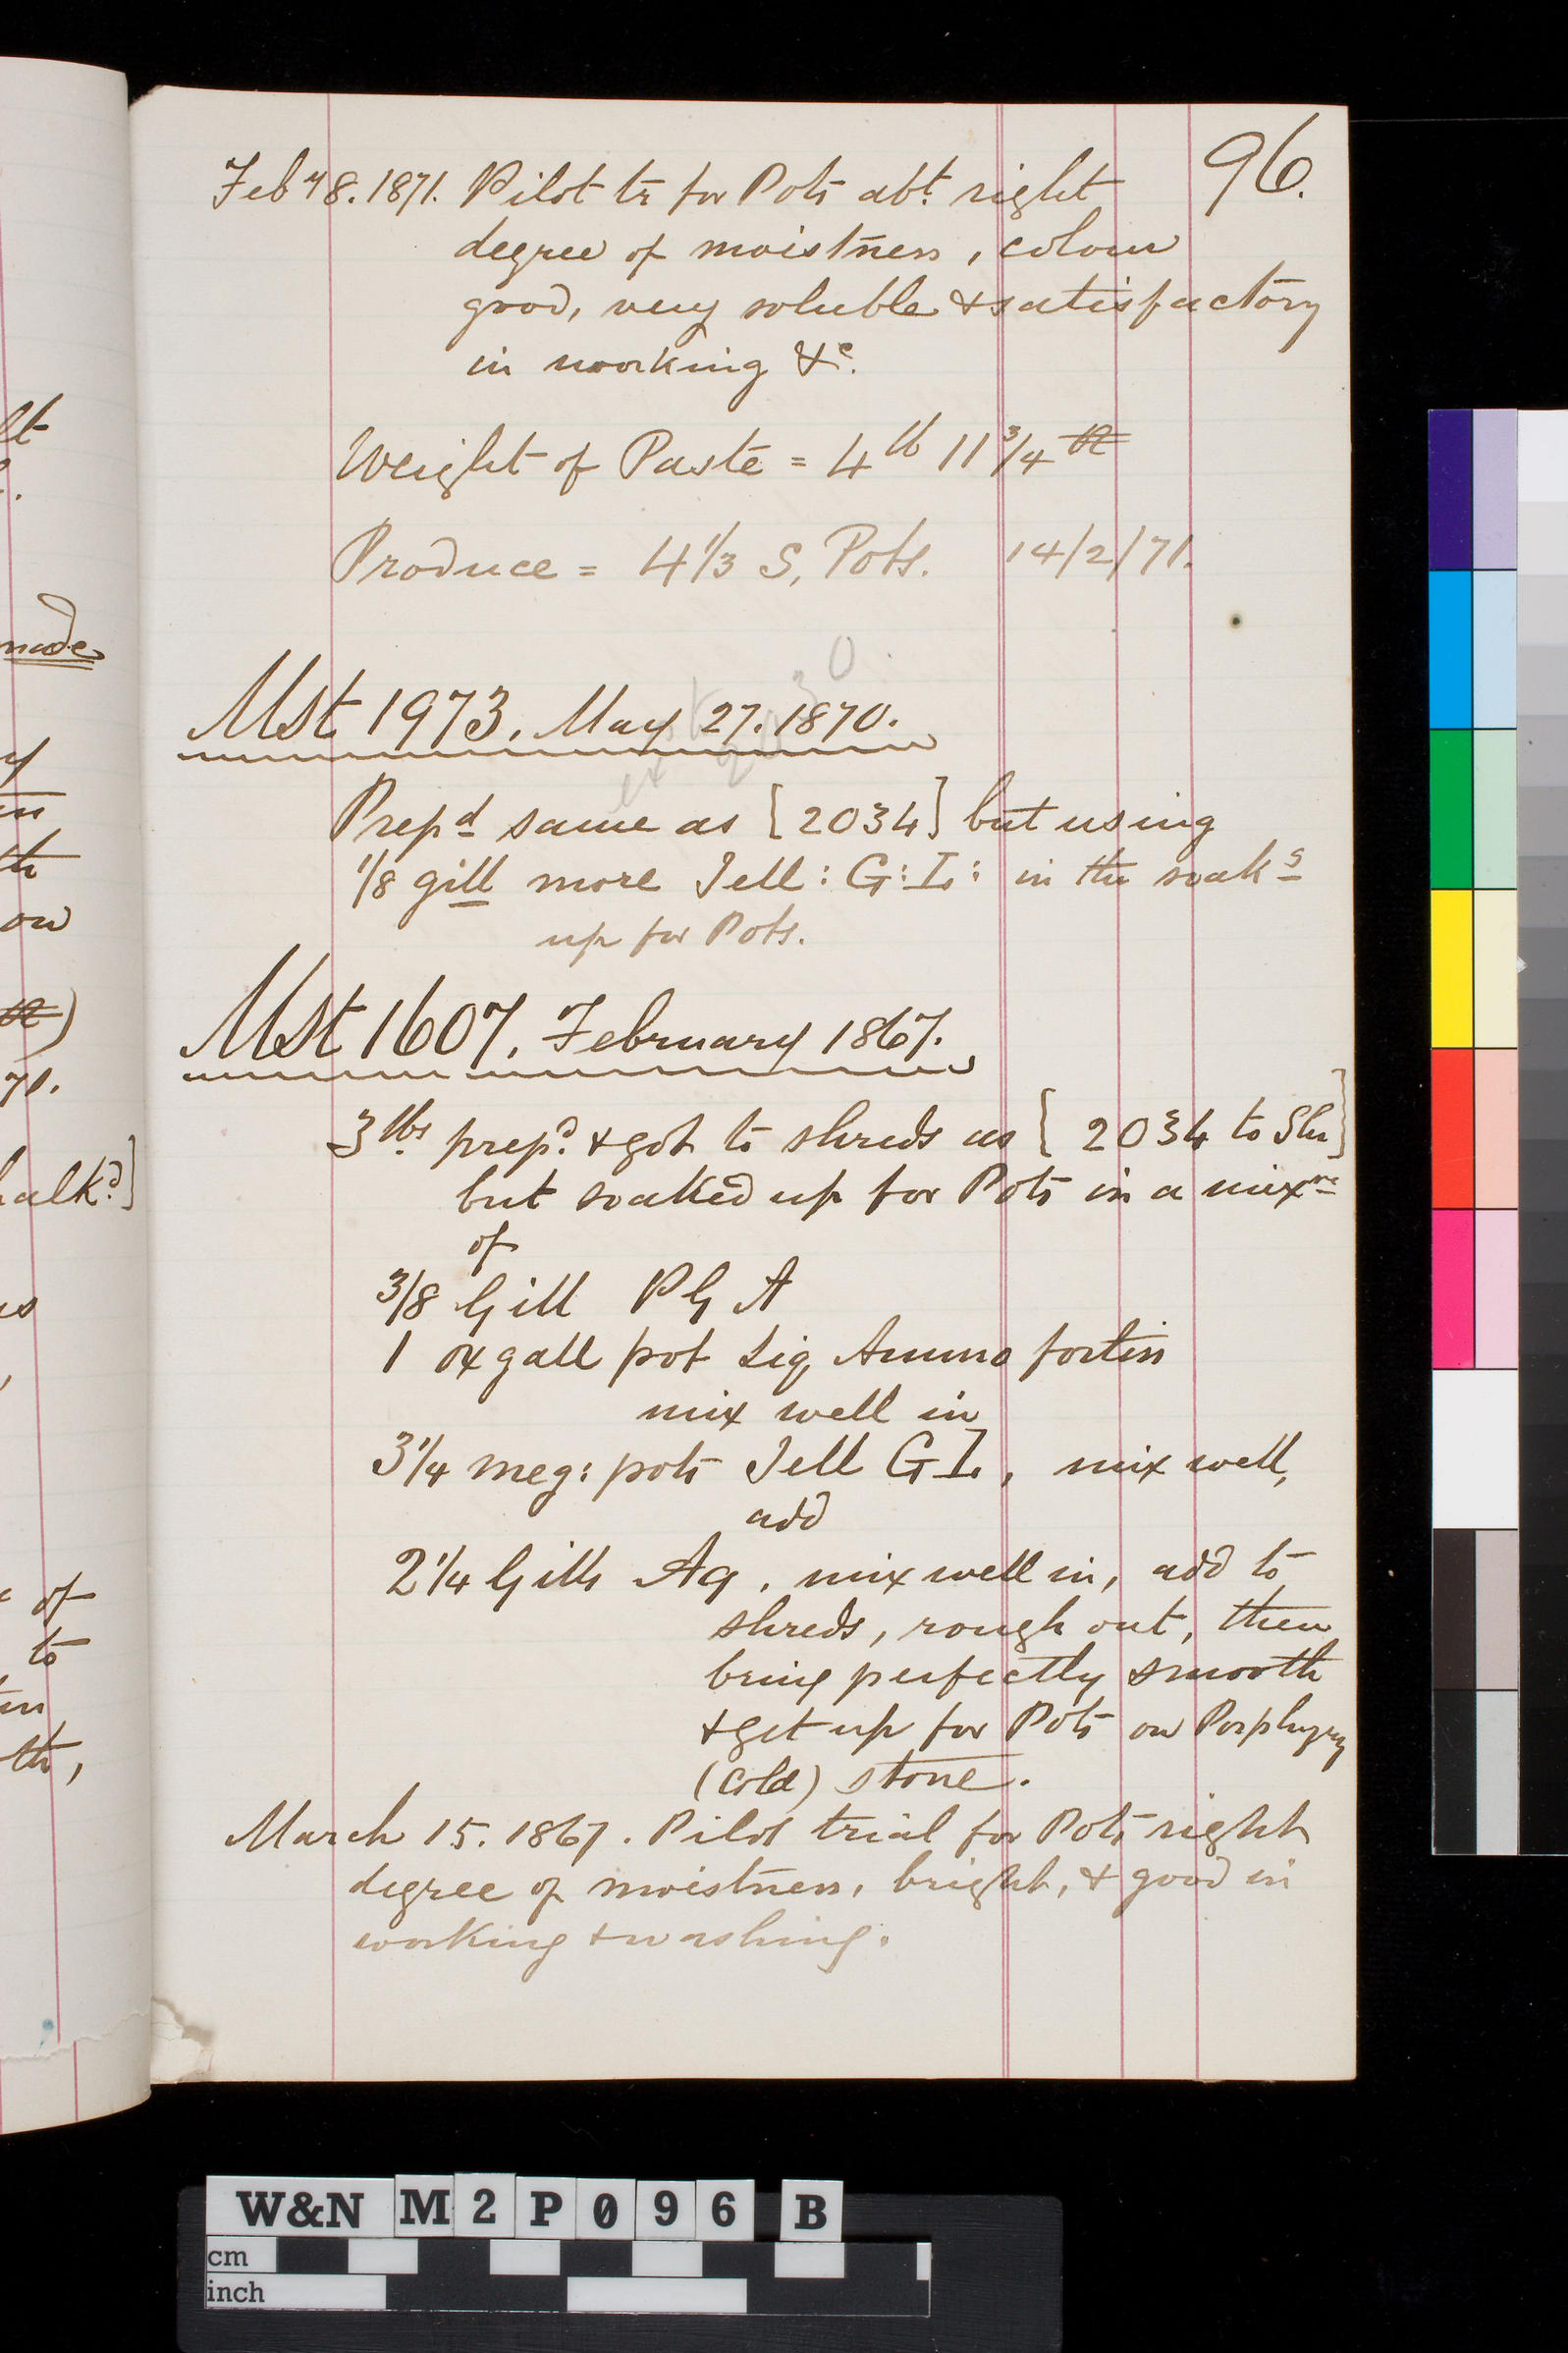 96.
Feby 8. 1871. Pilot tr for Pots abt. right
degree of moistness, colour
good, very soluble & satisfactory
in working &c.
Weight of Paste = 4 lb 11 3/4 oz
Produce = 4 1/3 S, Pots. 14/2/71.
Mst 1973. May 27. 1870.
Prepd same as [2034] but using
1/8 gill more Jell: G: I: in the soakg
up for Pots.
Mst 1607. February 1867.
3 lbs. prepd. & got to shreds as [2034 to Sh]
but soaked up for Pots in a mixre
of
3/8 Gill P G A
1 oxgall pot Liq Ammo fortis
mix well in
3 1/4 meg: pots Jell G I, mix well,
add
2 1/4 Gills Aq, mix well in, add to
shreds, rough out, then
bring perfectly smooth
& get up for Pots on Porphyry
(cold) stone.
March 15. 1867. Pilot trial for Pots right
degree of moistness, bright, & good in
working & washing.
lt
made
y
th
on
oz)
71.
halkd.]
of
to
th,
W&N M2P096 B
cm
inch